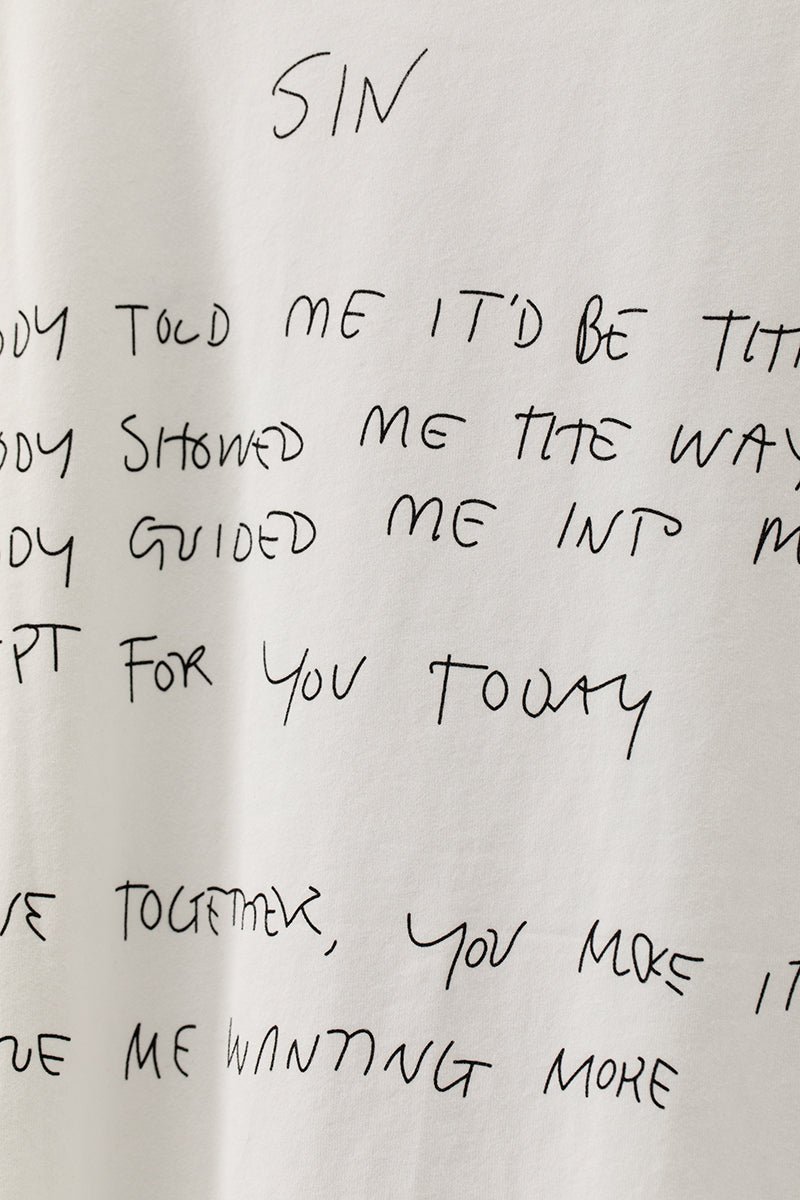 SIN
ODY TOLD ME IT'D BE THI
ODY SHOWED ME THE WAY
DY GUIDED ME INTO M
PT FOR YOU TODAY
VE TOGETHER, YOU MAKE IT
VE ME WANTING MORE